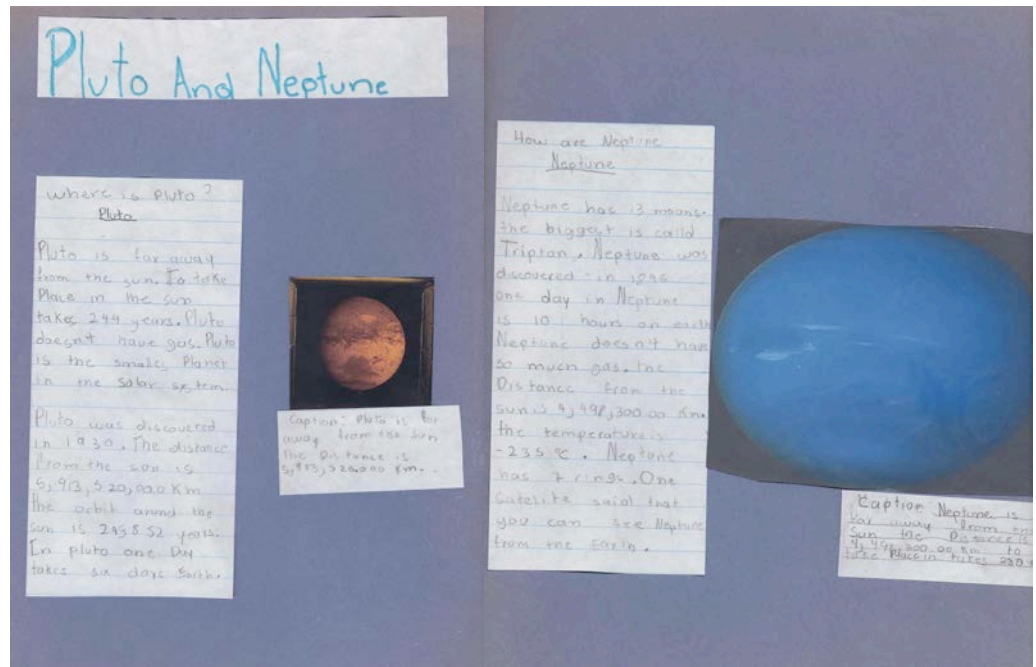 Pluto And Neptune
Where is Pluto?
Pluto
Pluto is far away
from the sun. To take
Place in the sun
takes 244 years. Pluto
doesn't have gas. Pluto
is the smalles Planet
in the solar system.
Pluto was discovered
in 1930. The distance
from the sun is
5,913,520,000 Km
the orbit around the
sun is 248.52 years.
In pluto one Day
takes six days Earth.
Caption: Pluto is far
away from the sun
the Distance is
5,913,520,000 Km.
How are Neptune
Neptune
Neptune has 13 moons.
the biggest is calld
Tripton. Neptune was
discovered in 1846
one day in Neptune
is 10 hours on earth
Neptune doesn't have
so much gas. the
Distance from the
sun is 4,498,300.00 Km.
the temperature is
-235 °C. Neptune
has 7 rings. One
satelite said that
you can see Neptune
from the Earth.
Caption: Neptune is
far away from
Sun the Distance is
4,498,300.00 Km to
take Place in takes